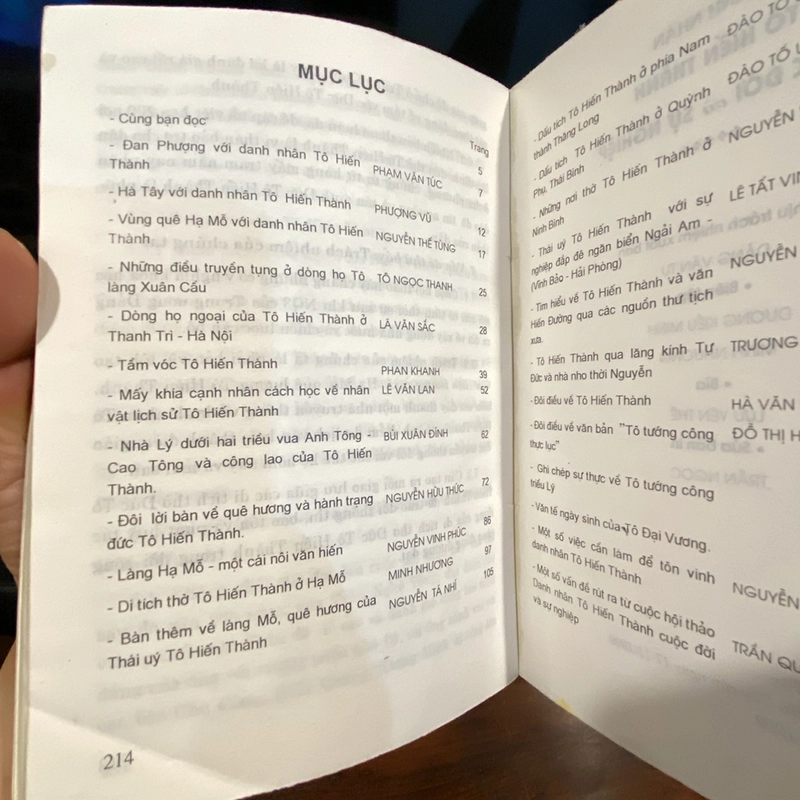 MỤC LỤC
Trang
- Cùng bạn đọc 5
- Đan Phượng với danh nhân Tô Hiến PHẠM VĂN TÚC 7
Thành
- Hà Tây với danh nhân Tô Hiến Thành PHƯỢNG VŨ 12
- Vùng quê Hạ Mỗ với danh nhân Tô Hiến NGUYỄN THẾ TÙNG 17
Thành
- Những điều truyền tụng ở dòng họ Tô TÔ NGỌC THANH 25
làng Xuân Cầu
- Dòng họ ngoại của Tô Hiến Thành ở LÃ VĂN SẮC 28
Thanh Trì - Hà Nội
- Tầm vóc Tô Hiến Thành PHAN KHANH 39
- Mấy khía cạnh nhân cách học về nhân LÊ VĂN LAN 52
vật lịch sử Tô Hiến Thành
- Nhà Lý dưới hai triều vua Anh Tông - BÙI XUÂN ĐÍNH 62
Cao Tông và công lao của Tô Hiến
Thành.
- Đôi lời bàn về quê hương và hành trạng NGUYỄN HỮU THỨC 72
đức Tô Hiến Thành.
- Làng Hạ Mỗ - một cái nôi văn hiến NGUYỄN VINH PHÚC 86
- Di tích thờ Tô Hiến Thành ở Hạ Mỗ MINH NHƯƠNG 97
- Bàn thêm về làng Mỗ, quê hương của NGUYỄN TÁ NHÍ 105
Thái uý Tô Hiến Thành
214
- Dấu tích Tô Hiến Thành ở phía Nam ĐÀO TỐ
thành Thăng Long
- Dấu tích Tô Hiến Thành ở Quỳnh ĐÀO TỐ
Phụ, Thái Bình
- Những nơi thờ Tô Hiến Thành ở NGUYỄN
Ninh Bình
- Thái uý Tô Hiến Thành với sự LÊ TẤT VIN
nghiệp đắp đê ngăn biển Ngải Am -
(Vĩnh Bảo - Hải Phòng)
- Tìm hiểu về Tô Hiến Thành và văn NGUYỄN
Hiến Đường qua các nguồn thư tịch
xưa.
- Tô Hiến Thành qua lăng kính Tự TRƯƠNG
Đức và nhà nho thời Nguyễn
- Đôi điều về Tô Hiến Thành HÀ VĂN
- Đôi điều về văn bản "Tô tướng công ĐỖ THỊ H
thực lục"
- Ghi chép sự thực về Tô tướng công
triều Lý
- Văn tế ngày sinh của Tô Đại Vương.
- Một số việc cần làm để tôn vinh NGUYỄN
danh nhân Tô Hiến Thành
- Một số vấn đề rút ra từ cuộc hội thảo TRẦN QU
Danh nhân Tô Hiến Thành cuộc đời
và sự nghiệp